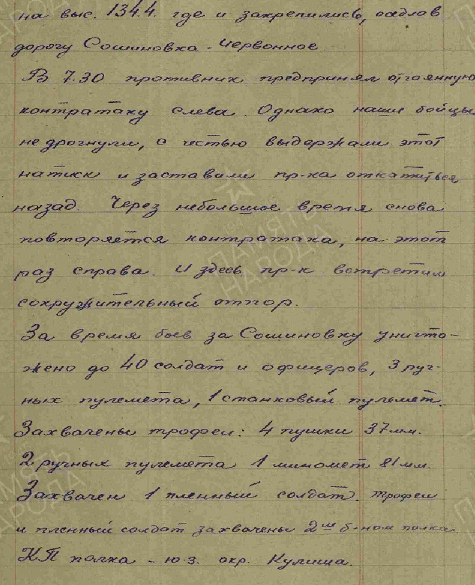 на выс. 134.4. где и закрепились, оседлов
дорогу Сошиновка - Червонное
В 7.30 противник предпринял отчаянную
контратаку слева. Однако наши бойцы
не дрогнули, с честью выдержали этот
натиск и заставили пр-ка откатиться
назад. Через небольшое время снова
повторяется контратака, на этот
раз справа. И здесь пр-к встретил
сокрушительный отпор.
За время боев за Сошиновку уничто-
жено до 40 солдат и офицеров, 3 руч-
ных пулемета, 1 станковый пулемет.
Захвачены трофеи: 4 пушки 37 мм.
2 ручных пулемета 1 миномет 81 мм.
Захвачен 1 пленный солдат. Трофеи
и пленный солдат захвачены 2ым б-ном полка
КП полка - ю.з. окр. Кулиша.